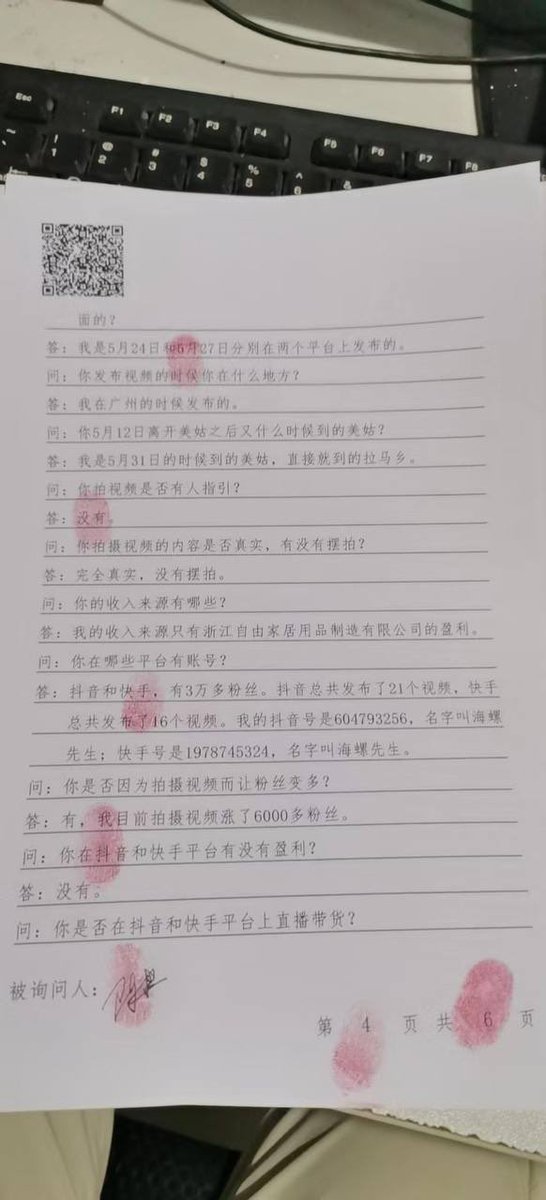 Esc F1 F2 F3 F4 F5 F6 F7 F8
~ ! 1 @ 2 # 3 $ 4 % 5 ^ 6 &
面的？
答：我是5月24日和5月27日分别在两个平台上发布的。
问：你发布视频的时候你在什么地方？
答：我在广州的时候发布的。
问：你5月12日离开美姑之后又什么时候到的美姑？
答：我是5月31日的时候到的美姑，直接就到的拉马乡。
问：你拍视频是否有人指引？
答：没有。
问：你拍摄视频的内容是否真实，有没有摆拍？
答：完全真实，没有摆拍。
问：你的收入来源有哪些？
答：我的收入来源只有浙江自由家居用品制造有限公司的盈利。
问：你在哪些平台有账号？
答：抖音和快手，有3万多粉丝。抖音总共发布了21个视频，快手
总共发布了16个视频。我的抖音号是604793256，名字叫海螺
先生；快手号是1978745324，名字叫海螺先生。
问：你是否因为拍摄视频而让粉丝变多？
答：有，我目前拍摄视频涨了6000多粉丝。
问：你在抖音和快手平台有没有盈利？
答：没有。
问：你是否在抖音和快手平台上直播带货？
被询问人：
第 4 页 共 6 页